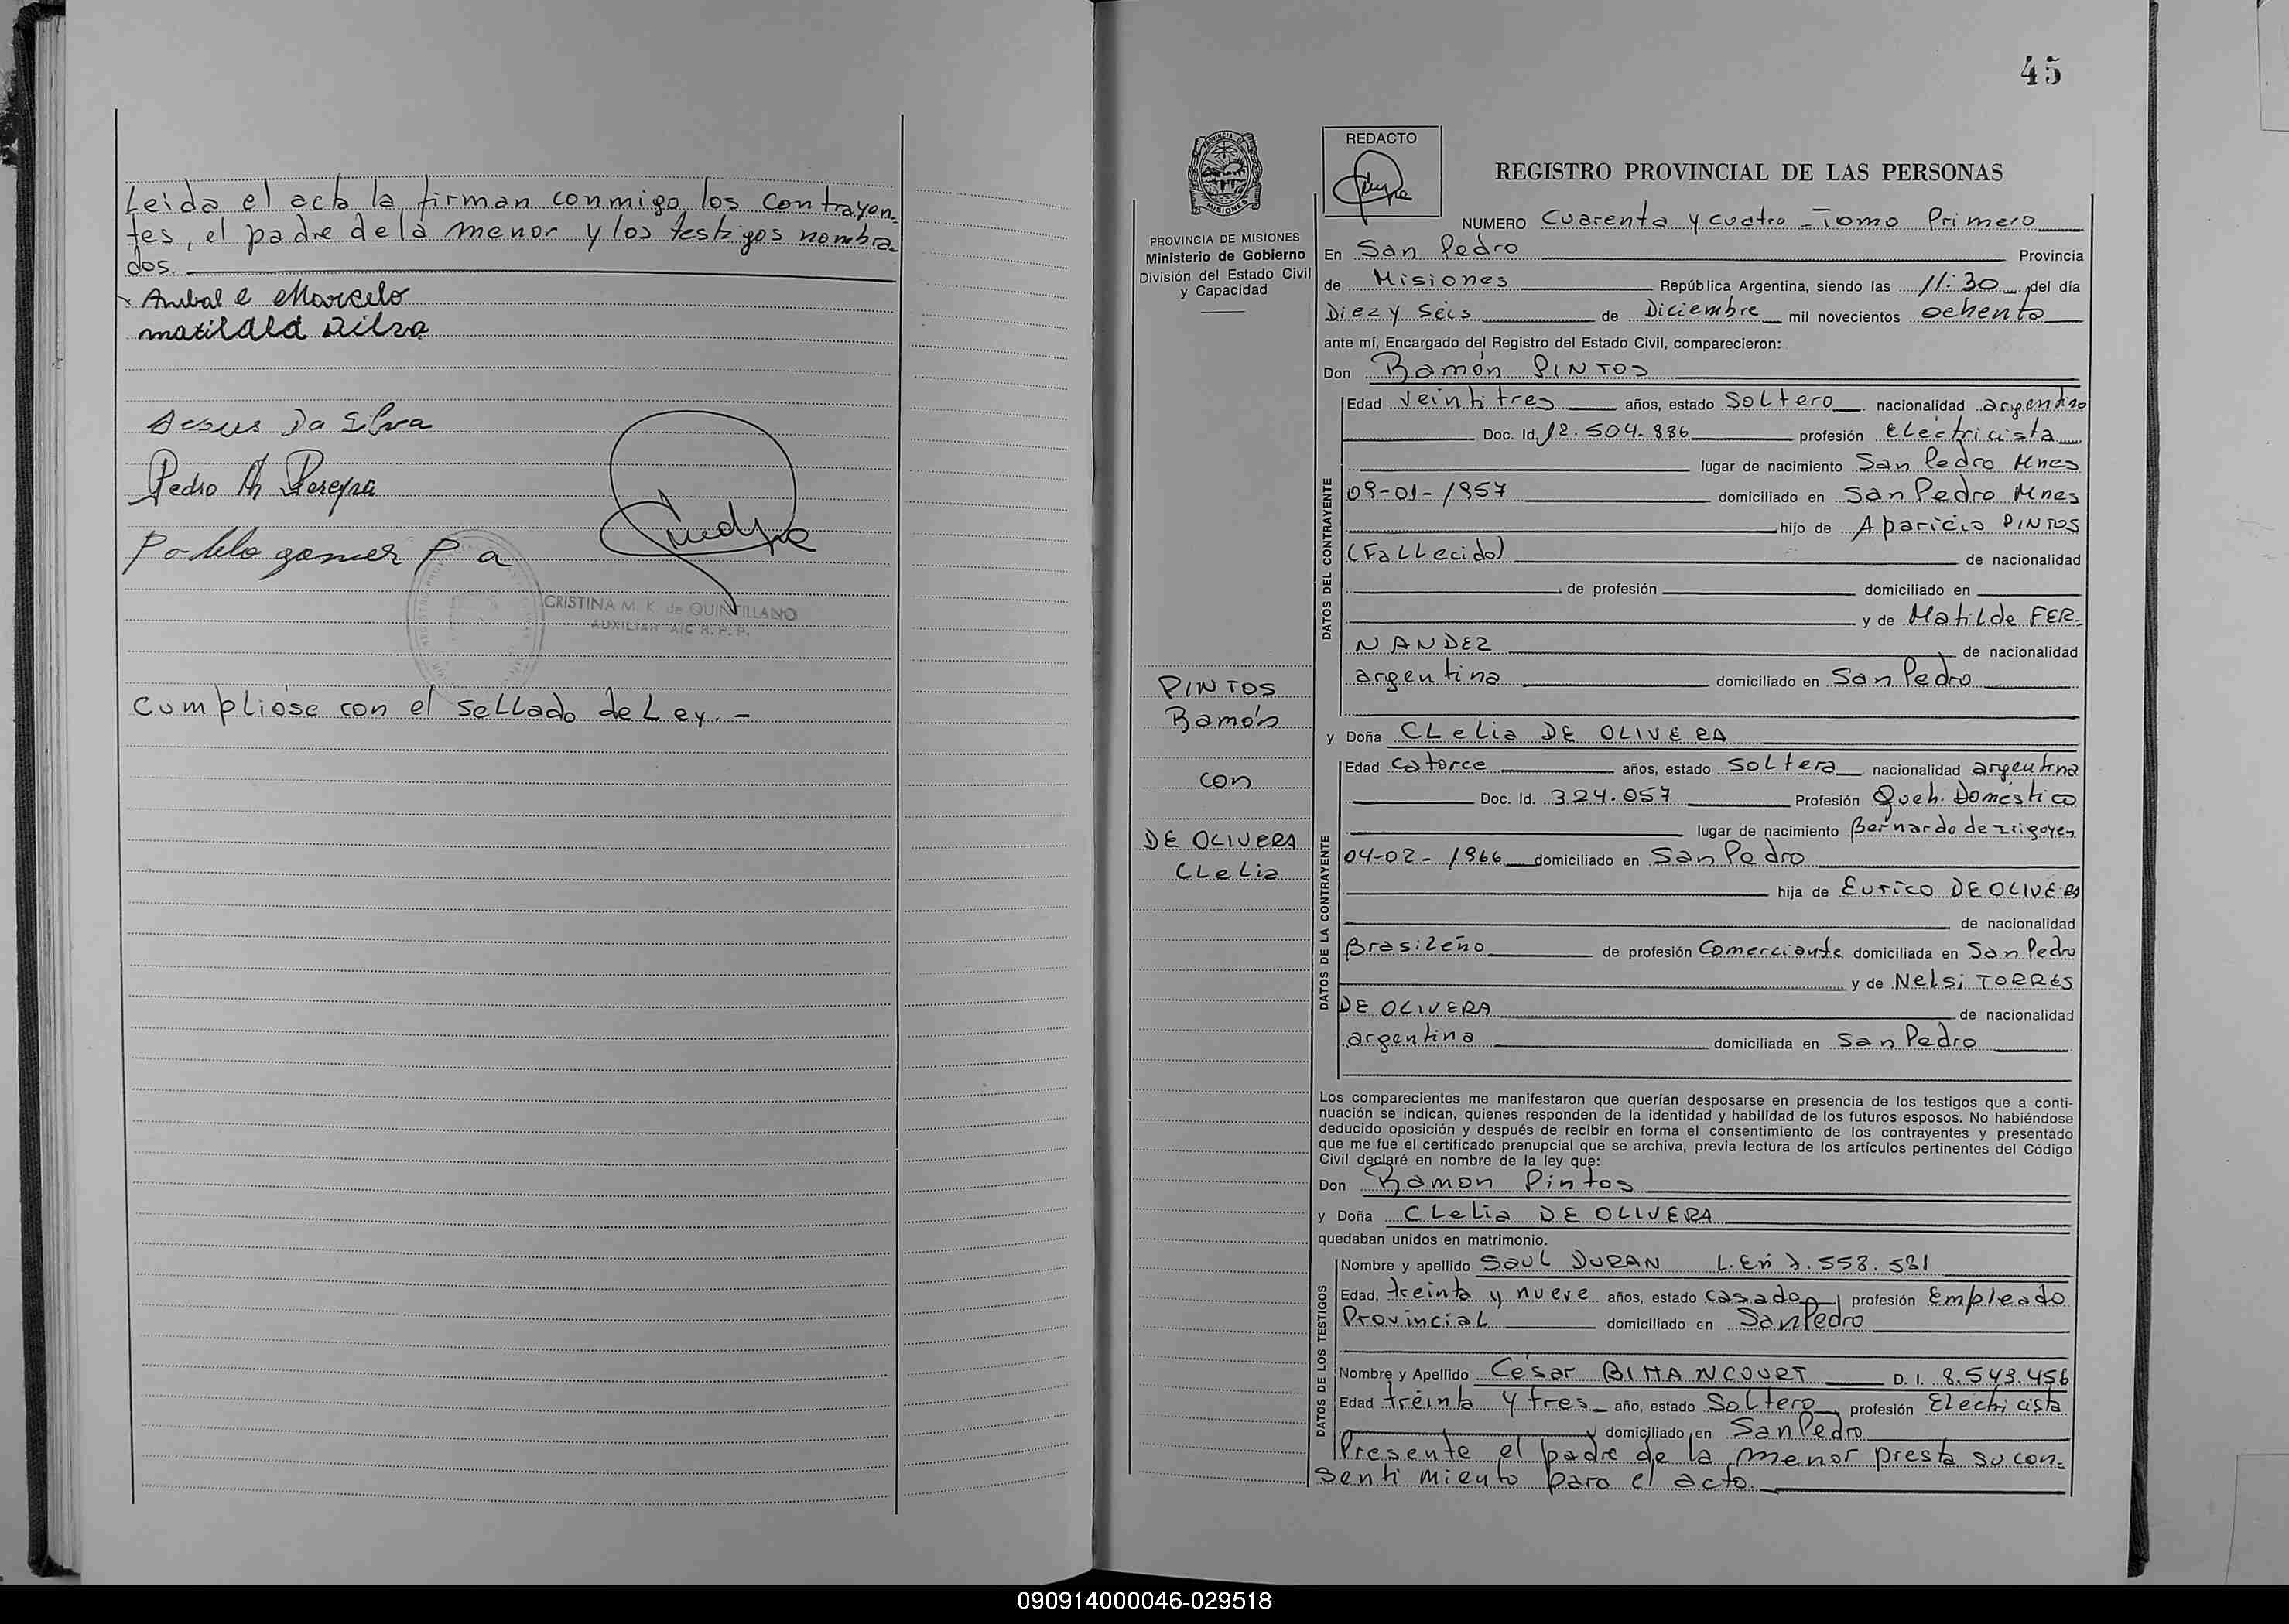 Leida el acta la firman conmigo los contrayen-
tes, el padre de la menor y los testigos nombra-
dos.
Anibal e Marcelo
matilda Dilza
Jesus Da Silva
Pedro A Pereyra
Pablo gomez P a
CRISTINA M. K. de QUINTILLANO
AUXILIAR A/C R. P. P.
Cumpliose con el sellado de Ley. -
45
PROVINCIA DE MISIONES
Ministerio de Gobierno
División del Estado Civil
y Capacidad
PINTOS
Ramón
con
DE OLIVERA
CLelia
REDACTO
REGISTRO PROVINCIAL DE LAS PERSONAS
NUMERO Cuarenta y cuatro - Tomo Primero
En San Pedro Provincia
de Misiones República Argentina, siendo las 11:30 del día
Diez y Seis de Diciembre mil novecientos ochenta
ante mí, Encargado del Registro del Estado Civil, comparecieron:
Don Ramón PINTOS
DATOS DEL CONTRAYENTE
Edad Veintitres años, estado Soltero nacionalidad argentino
Doc. Id. 12.504.886 profesión Electricista
lugar de nacimiento San Pedro Mnes
09-01-1957 domiciliado en San Pedro Mnes
hijo de Aparicio PINTOS
(Fallecido) de nacionalidad
de profesión domiciliado en
y de Matilde FER-
NANDEZ de nacionalidad
argentina domiciliado en San Pedro
y Doña CLelia DE OLIVERA
DATOS DE LA CONTRAYENTE
Edad Catorce años, estado Soltera nacionalidad argentina
Doc. Id. 324.057 Profesión Queh. Doméstico
lugar de nacimiento Bernardo de Irigoyen
04-02-1966 domiciliado en San Pedro
hija de Eurico DE OLIVERA
de nacionalidad
Brasileño de profesión Comerciante domiciliada en San Pedro
y de Nelsi TORRES
DE OLIVERA de nacionalidad
argentina domiciliada en San Pedro
Los comparecientes me manifestaron que querían desposarse en presencia de los testigos que a conti-
nuación se indican, quienes responden de la identidad y habilidad de los futuros esposos. No habiéndose
deducido oposición y después de recibir en forma el consentimiento de los contrayentes y presentado
que me fue el certificado prenupcial que se archiva, previa lectura de los artículos pertinentes del Código
Civil declaré en nombre de la ley que:
Don Ramon Pintos
y Doña CLelia DE OLIVERA
quedaban unidos en matrimonio.
DATOS DE LOS TESTIGOS
Nombre y apellido Saul DURAN L.E.n 7.558.581
Edad, treinta y nueve años, estado casado profesión Empleado
Provincial domiciliado en San Pedro
Nombre y Apellido César BITTANCOURT D. I. 8.543.456
Edad treinta y tres año, estado Soltero profesión Electricista
domiciliado en San Pedro
Presente el padre de la menor presta su con-
sentimiento para el acto.
090914000046-029518